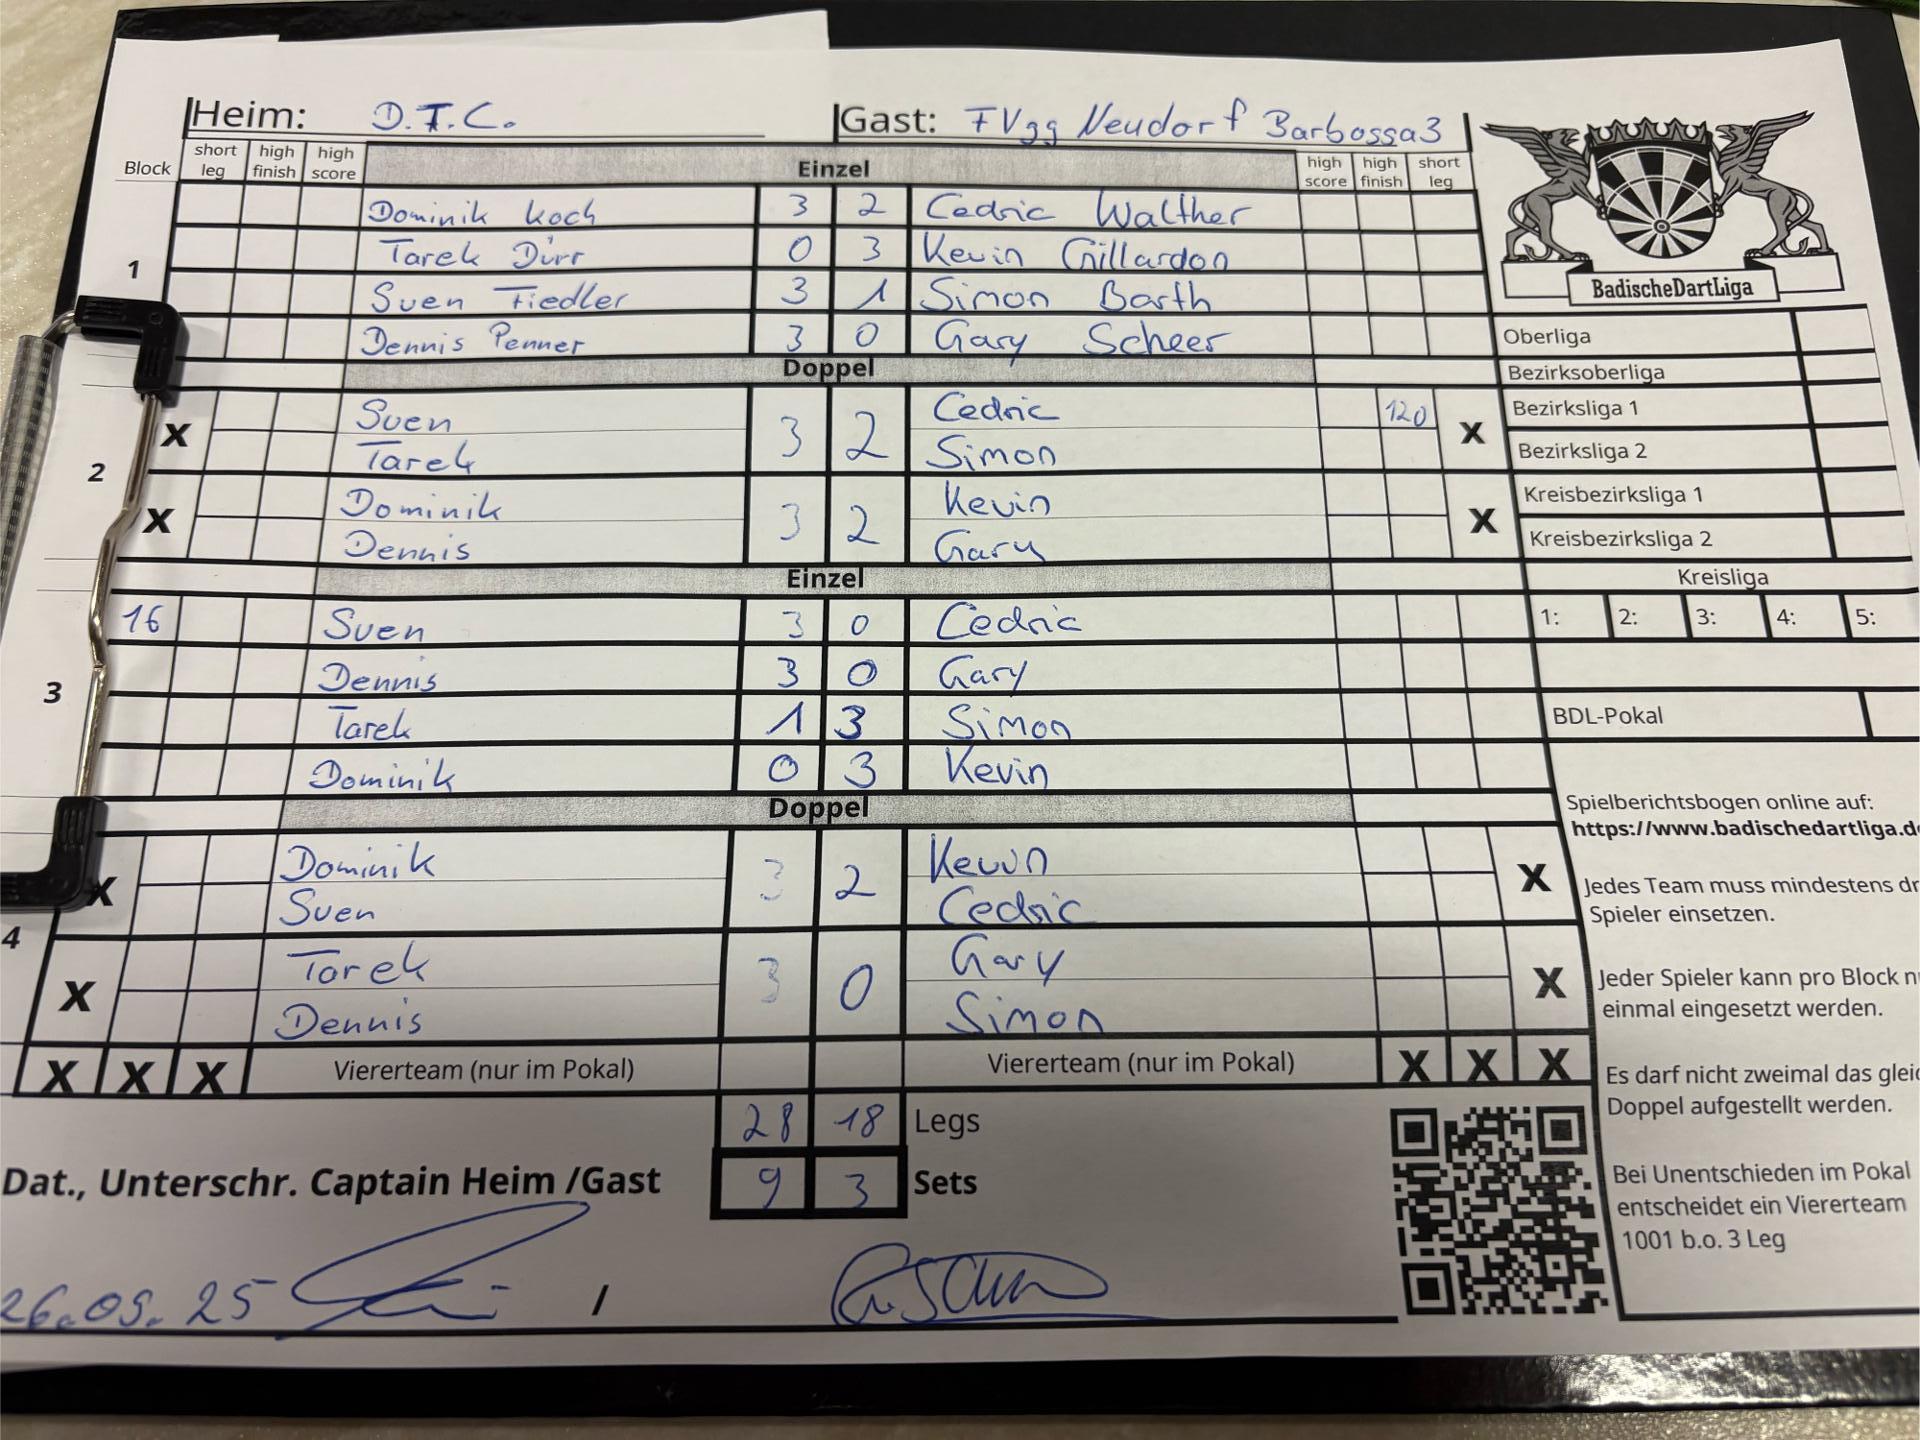 Heim: D.T.C. Gast: FVgg Neudorf Barbossa3
Block short leg high finish high score Einzel high score high finish short leg
1
Dominik Koch 3 2 Cedric Walther
Tarek Dürr 0 3 Kevin Gillardon
Sven Fiedler 3 1 Simon Barth
Dennis Penner 3 0 Gary Scheer
Doppel
2
X Sven 3 2 Cedric 120 X
Tarek Simon
X Dominik 3 2 Kevin X
Dennis Gary
Einzel
3
16 Sven 3 0 Cedric
Dennis 3 0 Gary
Tarek 1 3 Simon
Dominik 0 3 Kevin
Doppel
4
X Dominik 3 2 Kevin X
Sven Cedric
X Tarek 3 0 Gary X
Dennis Simon
X X X Viererteam (nur im Pokal) Viererteam (nur im Pokal) X X X
28 18 Legs
9 3 Sets
Dat., Unterschr. Captain Heim /Gast
26.09.25 /
BadischeDartLiga
Oberliga
Bezirksoberliga
Bezirksliga 1
Bezirksliga 2
Kreisbezirksliga 1
Kreisbezirksliga 2
Kreisliga
1: 2: 3: 4: 5:
BDL-Pokal
Spielberichtsbogen online auf:
https://www.badischedartliga.d
Jedes Team muss mindestens
Spieler einsetzen.
Jeder Spieler kann pro Block
einmal eingesetzt werden.
Es darf nicht zweimal das
Doppel aufgestellt werden.
Bei Unentschieden im Pokal
entscheidet ein Viererteam
1001 b.o. 3 Leg